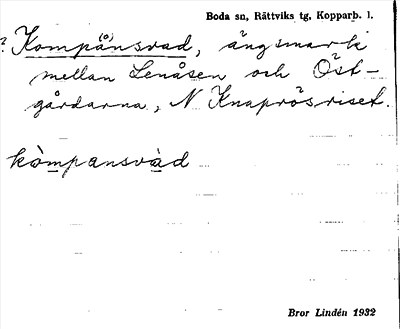 Boda sn, Rättviks tg, Kopparb. l.
? Kompånsvad, ängsmark
(o)
mellan Lenåsen och Öst-
gårdarna, N Knaprösriset.
kòmpansvàd
Bror Lindén 1932